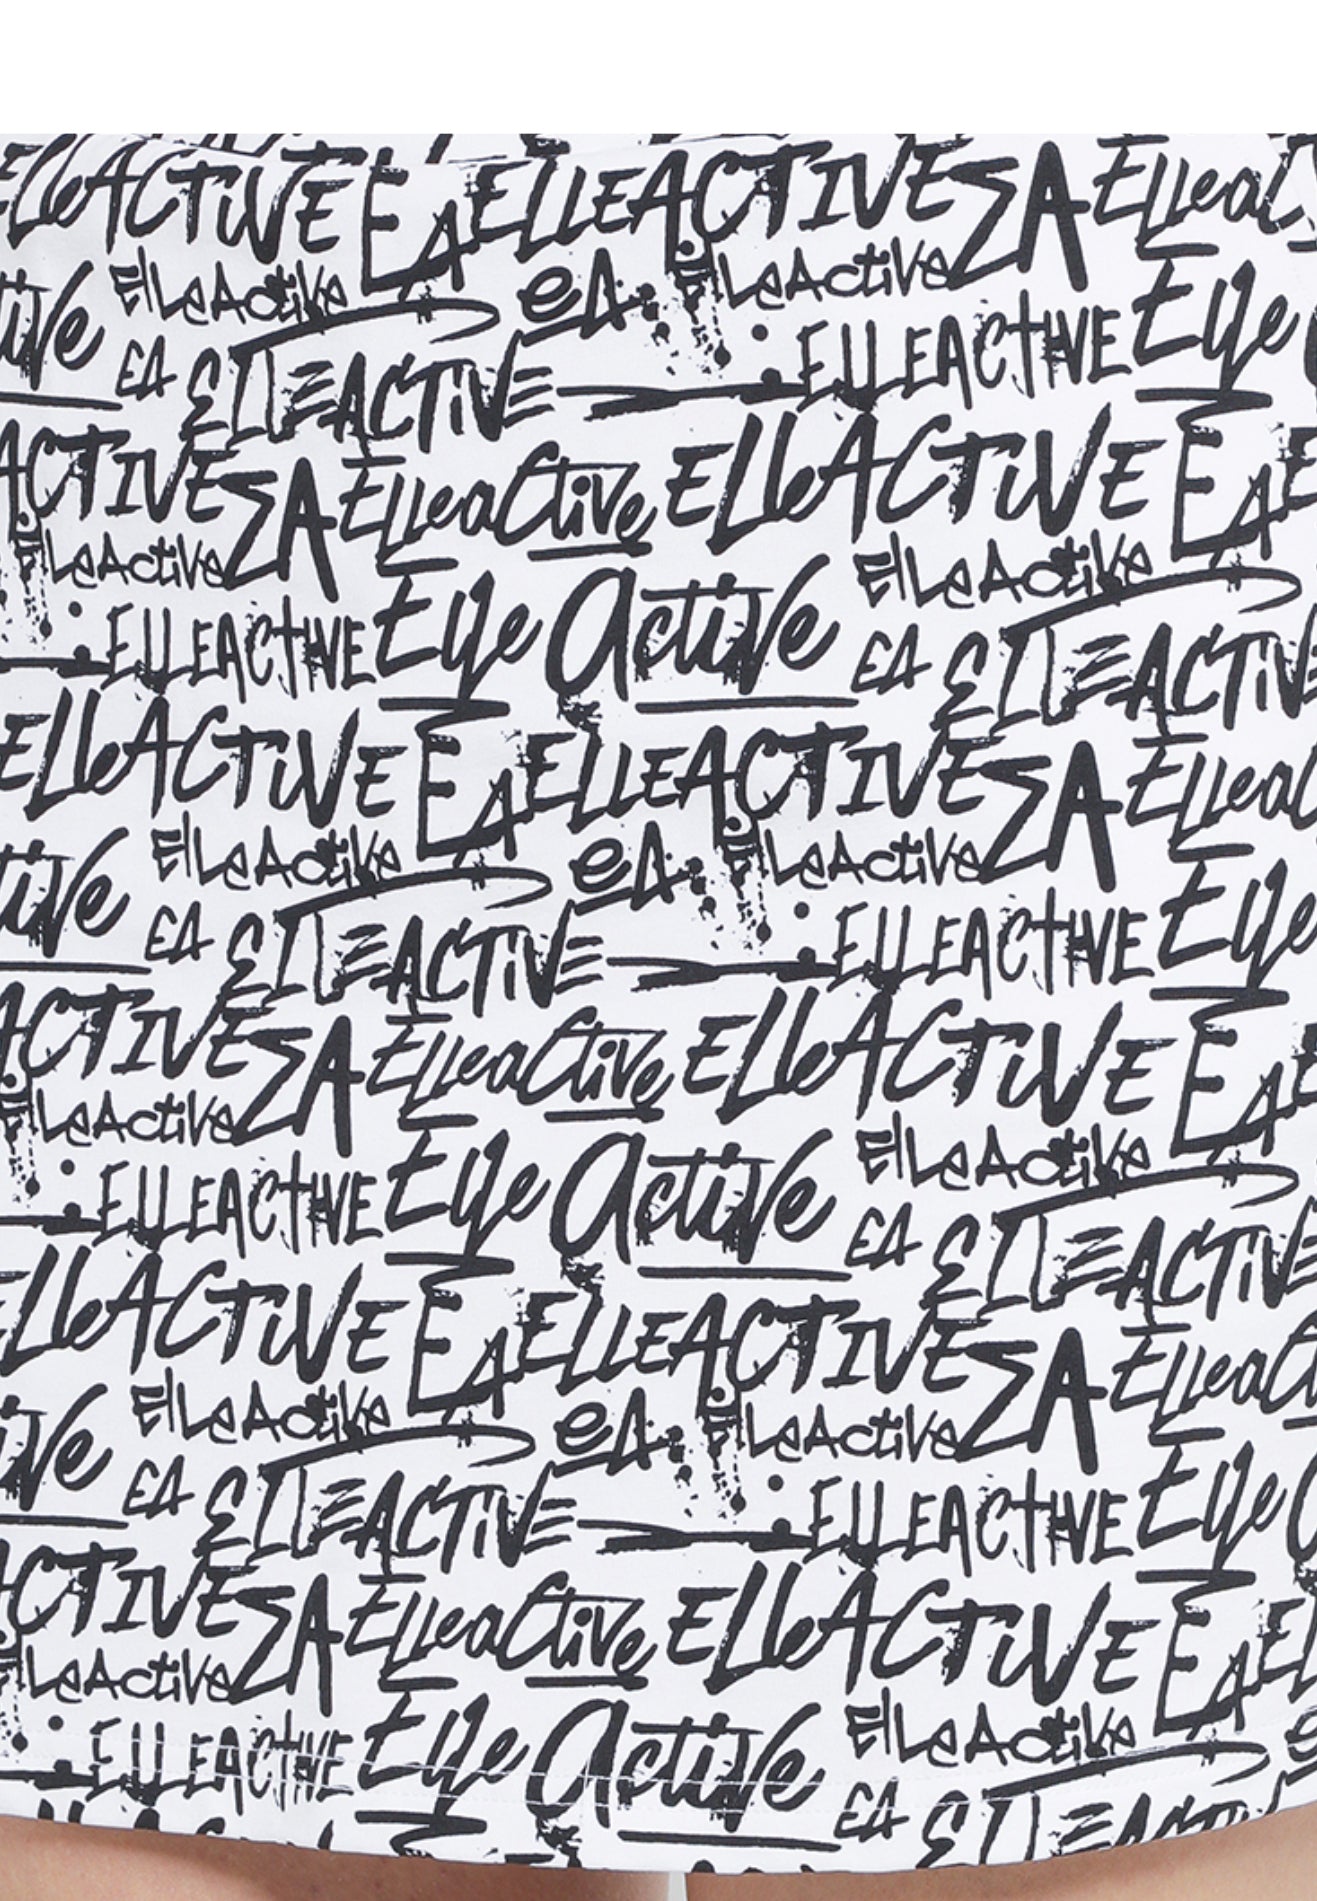 ElleACTiVE EA ELLEACTIVE EA Elleac
tive ElleActive eA ElleActive Elle
EA ElleACTiVE ELLEACTIVE
ACTIVE EA ElleaCtive ElleACTiVE EA E
ElleActive Elle active ElleActive
ELLEACTIVE EA ElleACTiVE
ElleACTiVE EA ELLEACTIVE EA Elleac
tive ElleActive eA ElleActive Elle
EA ElleACTiVE ELLEACTIVE
ACTIVE EA ElleaCtive ElleACTiVE EA E
ElleActive Elle active ElleActive
ELLEACTIVE EA ElleACTiVE
ElleACTiVE EA ELLEACTIVE EA Elleac
tive ElleActive eA ElleActive Elle
EA ElleACTiVE ELLEACTIVE
ACTIVE EA ElleaCtive ElleACTiVE EA El
ElleActive Elle active ElleActive
ELLEACTIVE EA